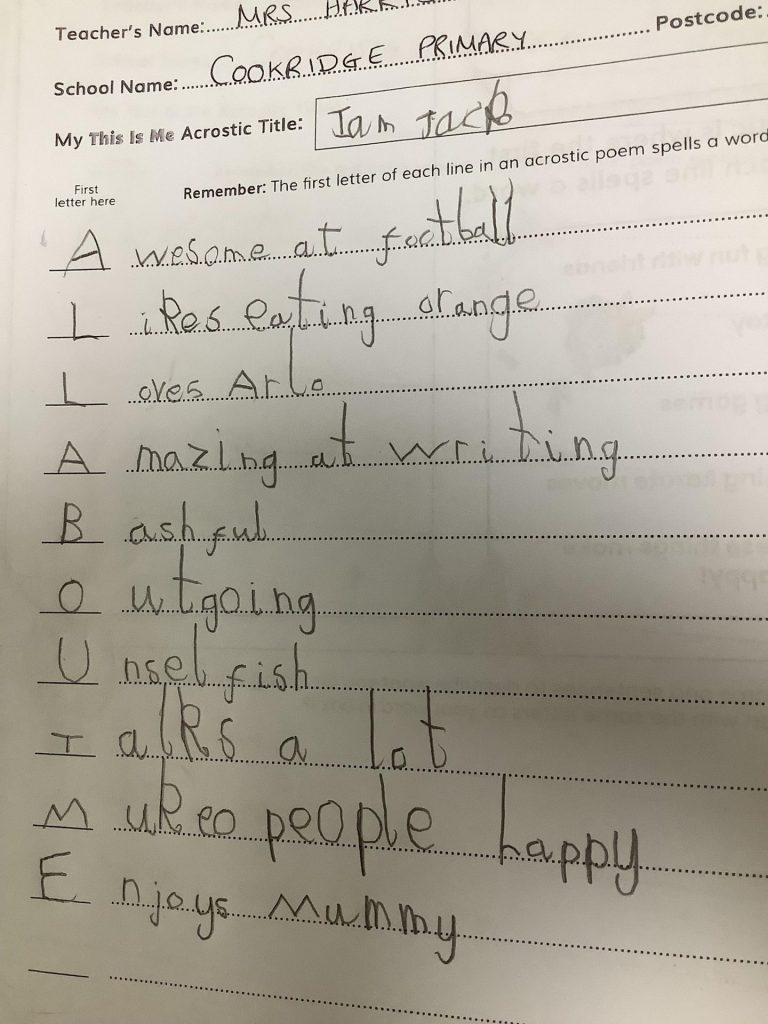 Teacher's Name: MRS
School Name: COOKRIDGE PRIMARY Postcode:
My This Is Me Acrostic Title: Iam Jack
First
letter here
Remember: The first letter of each line in an acrostic poem spells a word
A wesome at football
L ikes eating orange
L oves Arlo
A mazing at writing
B ashful
O utgoing
U nselfish
T alks a lot
M akeo people happy
E njoys Mummy